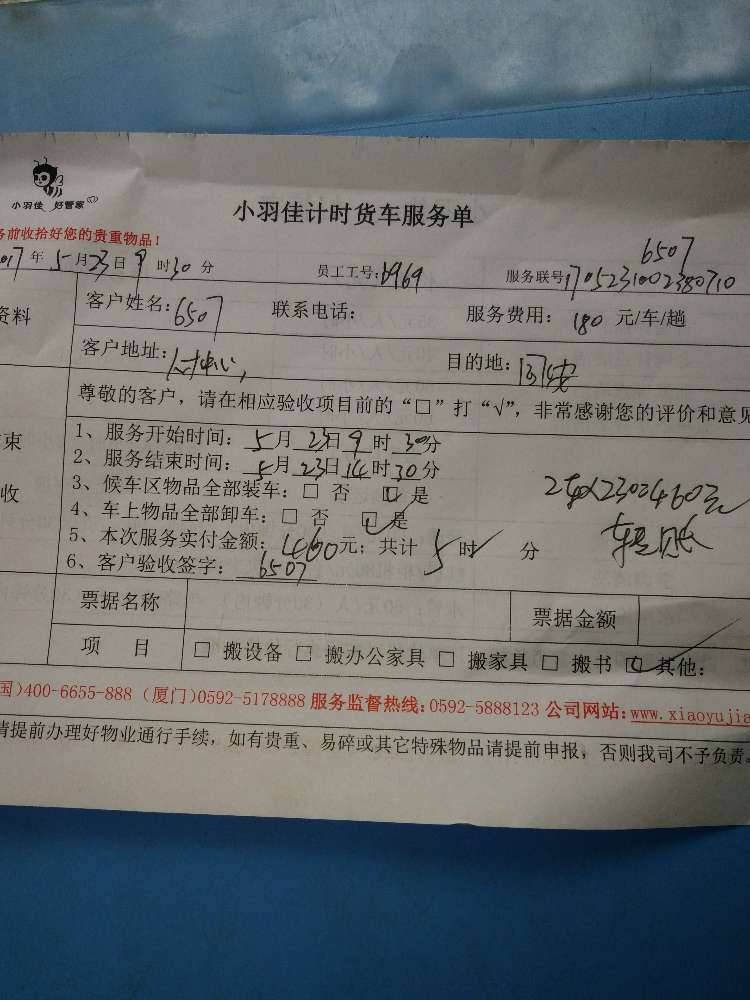 小羽佳 好管家
小羽佳计时货车服务单
务前收拾好您的贵重物品!
6507
017年5月23日9时30分 员工工号:6969 服务联号1705231002380710
资料 客户姓名:6507 联系电话: 服务费用:180元/车/趟
客户地址: 中心, 目的地:
尊敬的客户,请在相应验收项目前的“□”打“√”,非常感谢您的评价和意见
束 1、服务开始时间:5月23日9时30分
2、服务结束时间:5月23日14时30分
收 3、候车区物品全部装车:□ 否 □ 是
2车X230=460元
4、车上物品全部卸车:□ 否 ☑ 是
5、本次服务实付金额:460元;共计5时 分
6、客户验收签字:6507
票据名称 票据金额
项 目 □ 搬设备 □ 搬办公家具 □ 搬家具 □ 搬书 ☑ 其他:
国)400-6655-888 (厦门)0592-5178888 服务监督热线:0592-5888123 公司网站:www.xiaoyujia
请提前办理好物业通行手续,如有贵重、易碎或其它特殊物品请提前申报,否则我司不予负责。